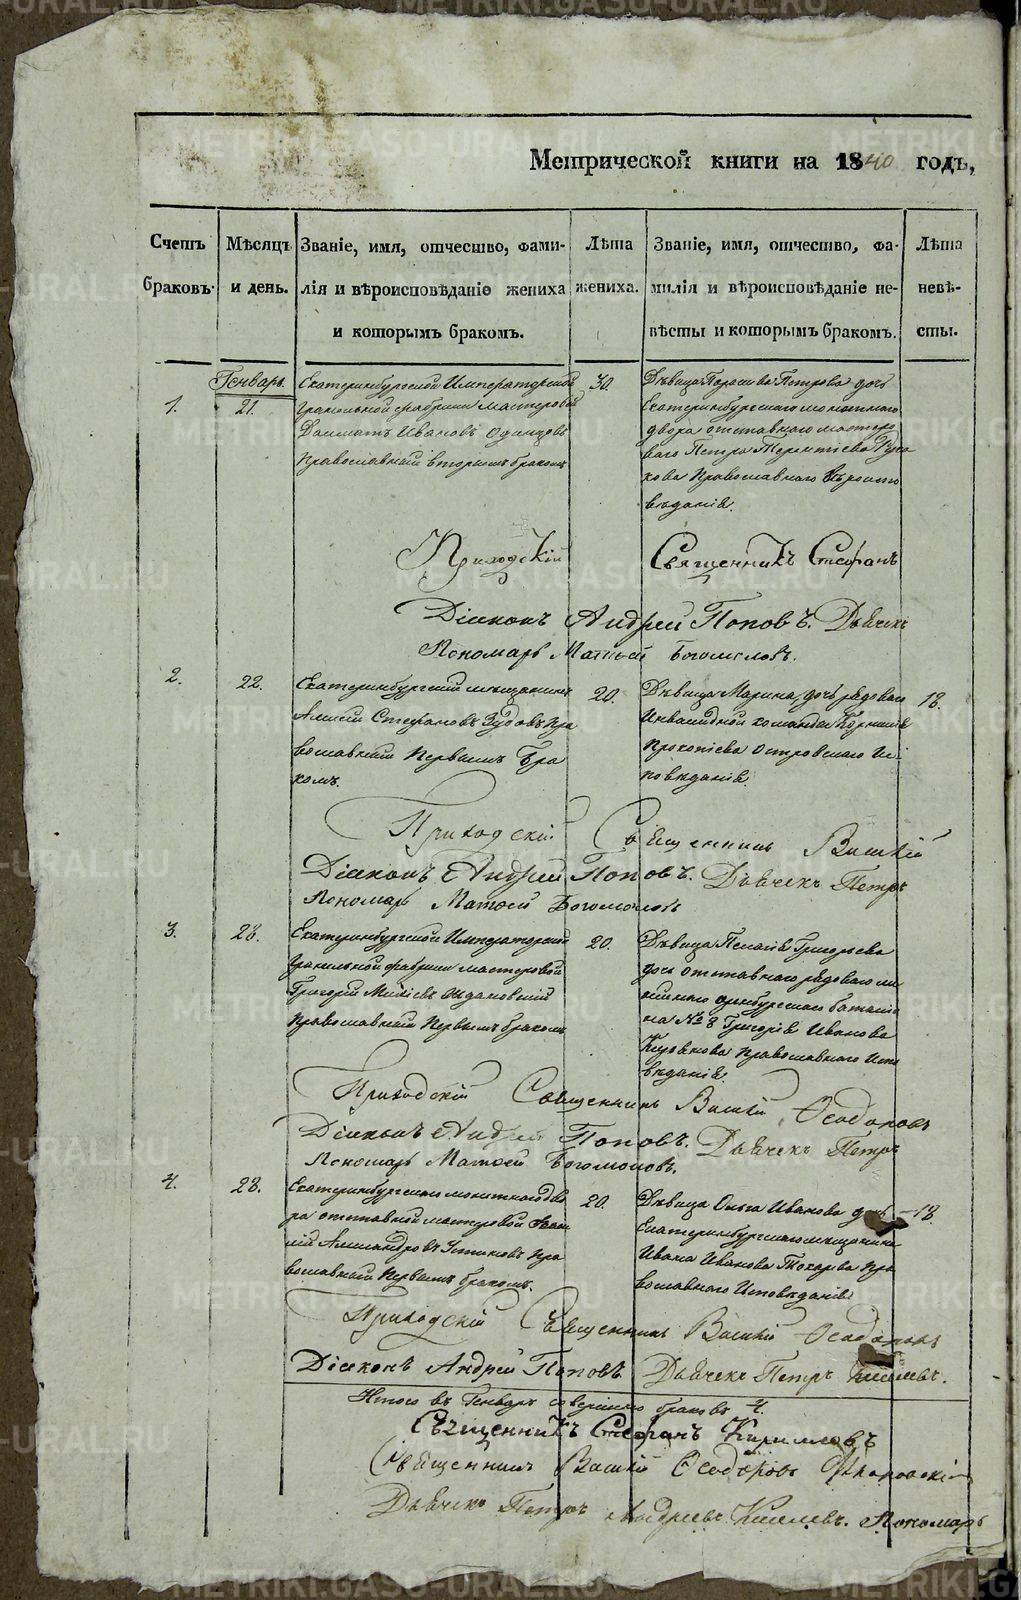 Метрической книги на 1840 годъ,
Счетъ браковъ.
Мѣсяцъ и день.
Званіе, имя, отчество, фами-
лія и вѣроисповѣданіе жениха
и которымъ бракомъ.
Лѣта жениха.
Званіе, имя, отчество, фа-
милія и вѣроисповѣданіе не-
вѣсты и которымъ бракомъ.
Лѣта невѣ-
сты.
Генварь.
1.
21.
Екатеринбургской Императорской
гранильной фабрики мастеровой
Далматъ Ивановъ Одинцовъ
православный вторымъ бракомъ
30.
Дѣвица Парасива Петрова дочь
Екатеринбургскаго монетнаго
двора отставнаго мастеро
ваго Петра Терентіева
кова Православнаго вѣроиспо
вѣданія.
Приходскій Священникъ Стефанъ
Діаконъ Андрей Поповъ. Дьячекъ
Пономарь Матвей Богомоловъ.
2.
22.
Екатеринбургскій мѣщанинъ
Алексѣй Стефановъ Зудовъ пра
вославный первымъ бра
комъ.
20.
Дѣвица Марина, дочь рядоваго
Инвалидной команды Корнилія
Прокопіева Островскаго Ис
повѣданія.
18.
Приходскій Священникъ Василій
Діаконъ Андрей Поповъ. Дьячекъ Петръ
Пономарь Матвей Богомоловъ
3.
28.
Екатеринбургской Императорской
гранильной фабрики мастеровой
Григорій
православный первымъ бракомъ
20.
Дѣвица Пелагія Григорьева
дочь отставнаго рядоваго ли
нейнаго оренбургскаго баталіо
на № 8 Григорія Иванова
православнаго испо
вѣданія.
Приходскій Священникъ Василій Ѳеодоровъ
Діаконъ Андрей Поповъ. Дьячекъ Петръ
Пономарь Матвей Богомоловъ.
4.
28.
Екатеринбургскаго монетнаго дво
ра отставной мастеровой
Александровъ Устиновъ пра
вославный первымъ бракомъ.
20.
Дѣвица Ольга Иванова дочь
Екатеринбургскаго мѣщанина
Ивана Иванова Токарева пра
вославнаго исповѣданія
18.
Приходскій Священникъ Василій Ѳеодоровъ
Діаконъ Андрей Поповъ. Дьячекъ Петръ Киселевъ.
Итого въ Генварѣ совершено браковъ 4.
Священникъ Стефанъ Кирилловъ
Священникъ Василій Ѳеодоровъ
Дьячекъ Петръ Андреевъ Киселевъ. Пономарь
METRIKI.GASO-URAL.RU